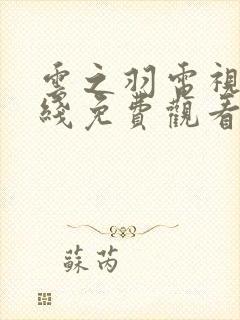 雲之羽電視
綫免費觀看
蘇芮